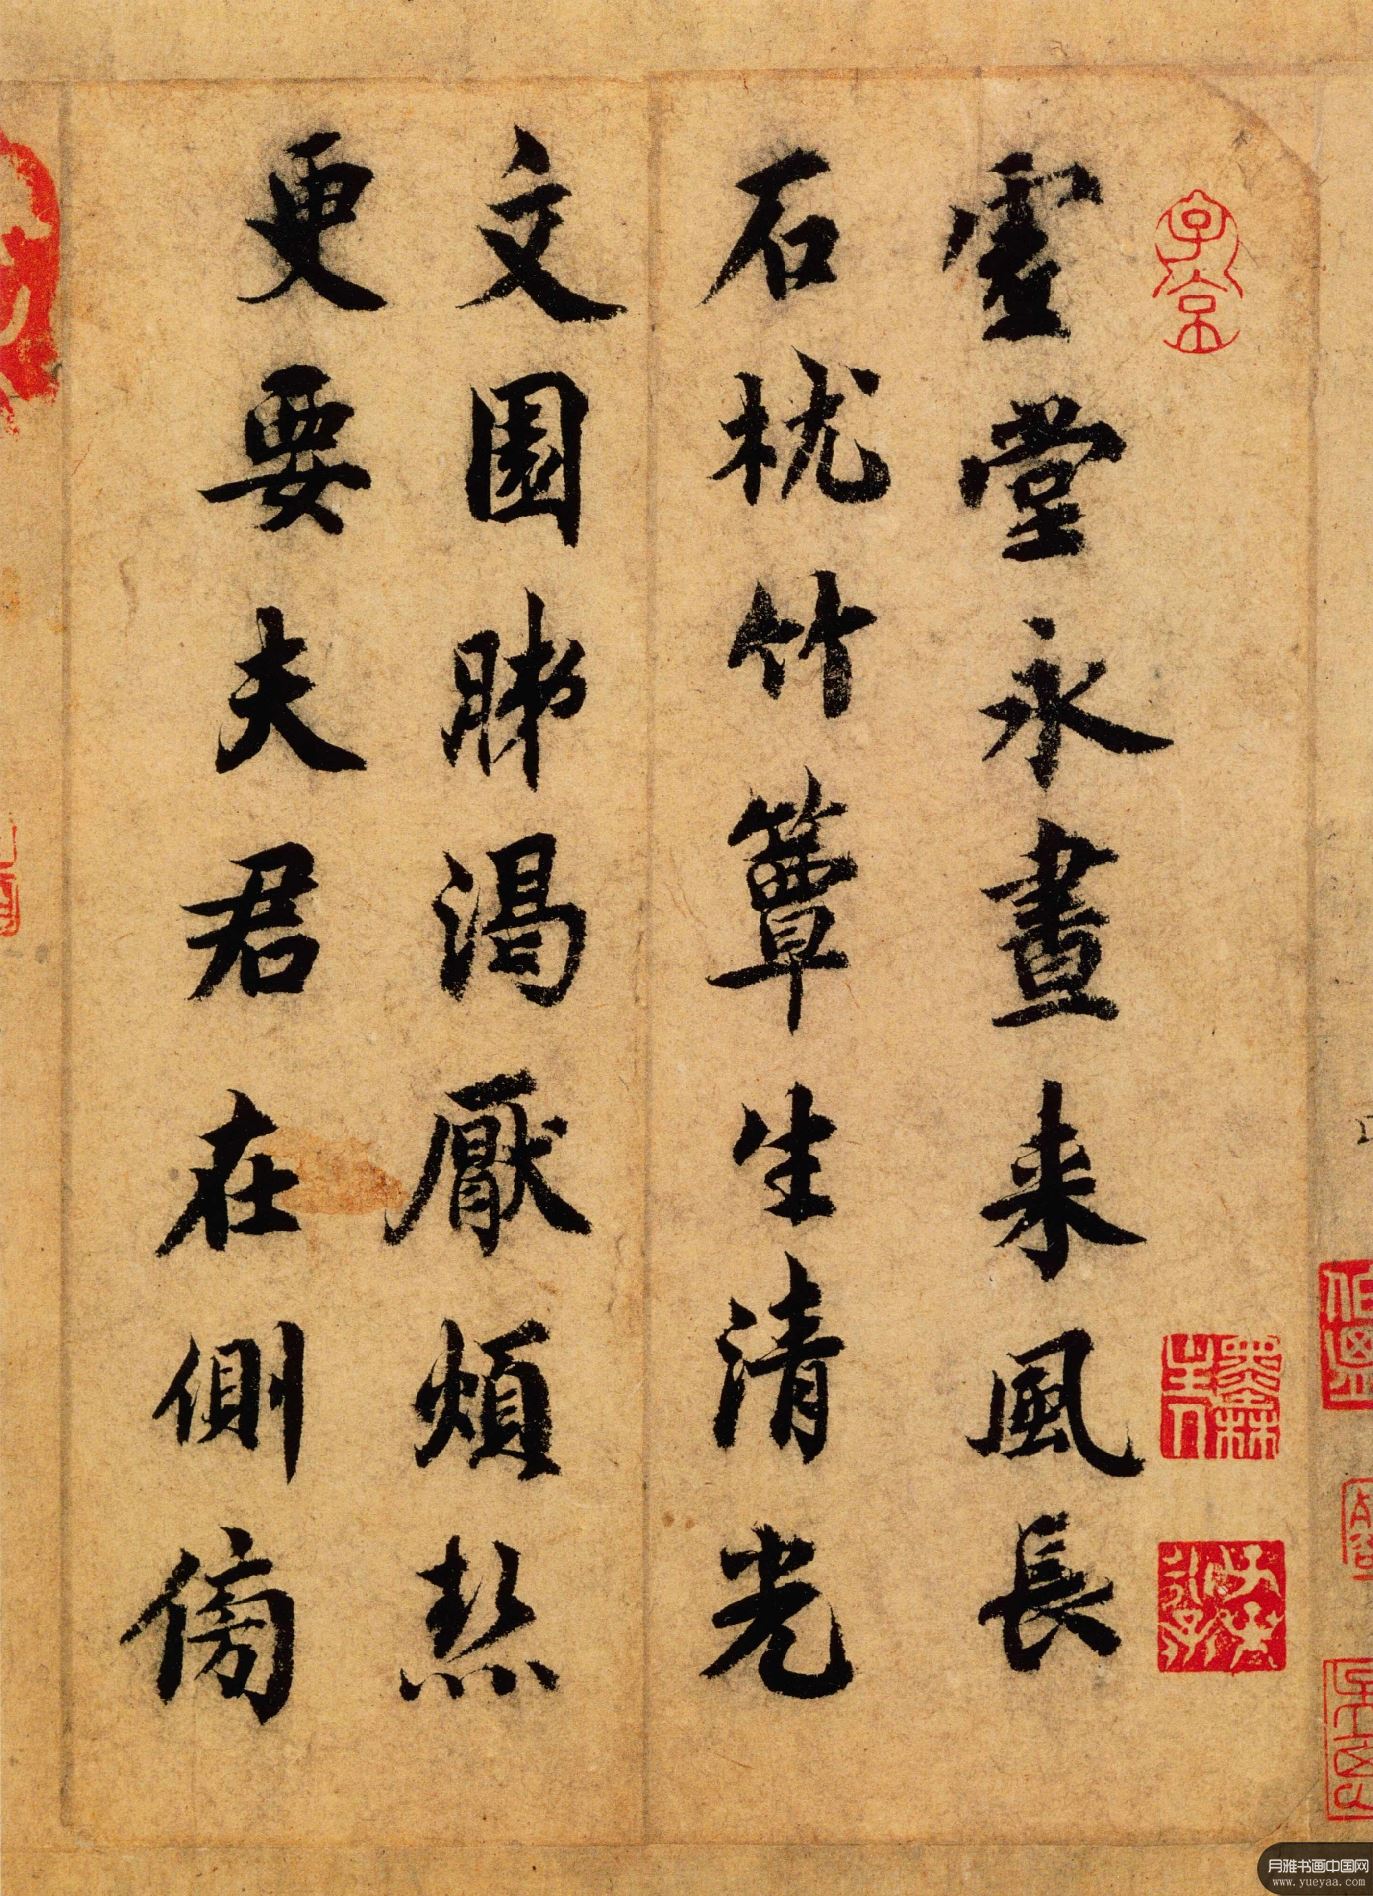 虛堂永晝来風長
石枕竹簟生清光
文園肺渴厭煩熱
更要夫君在側傍
子京
墨林山人
月雅书画中国网
www.yueyaa.com